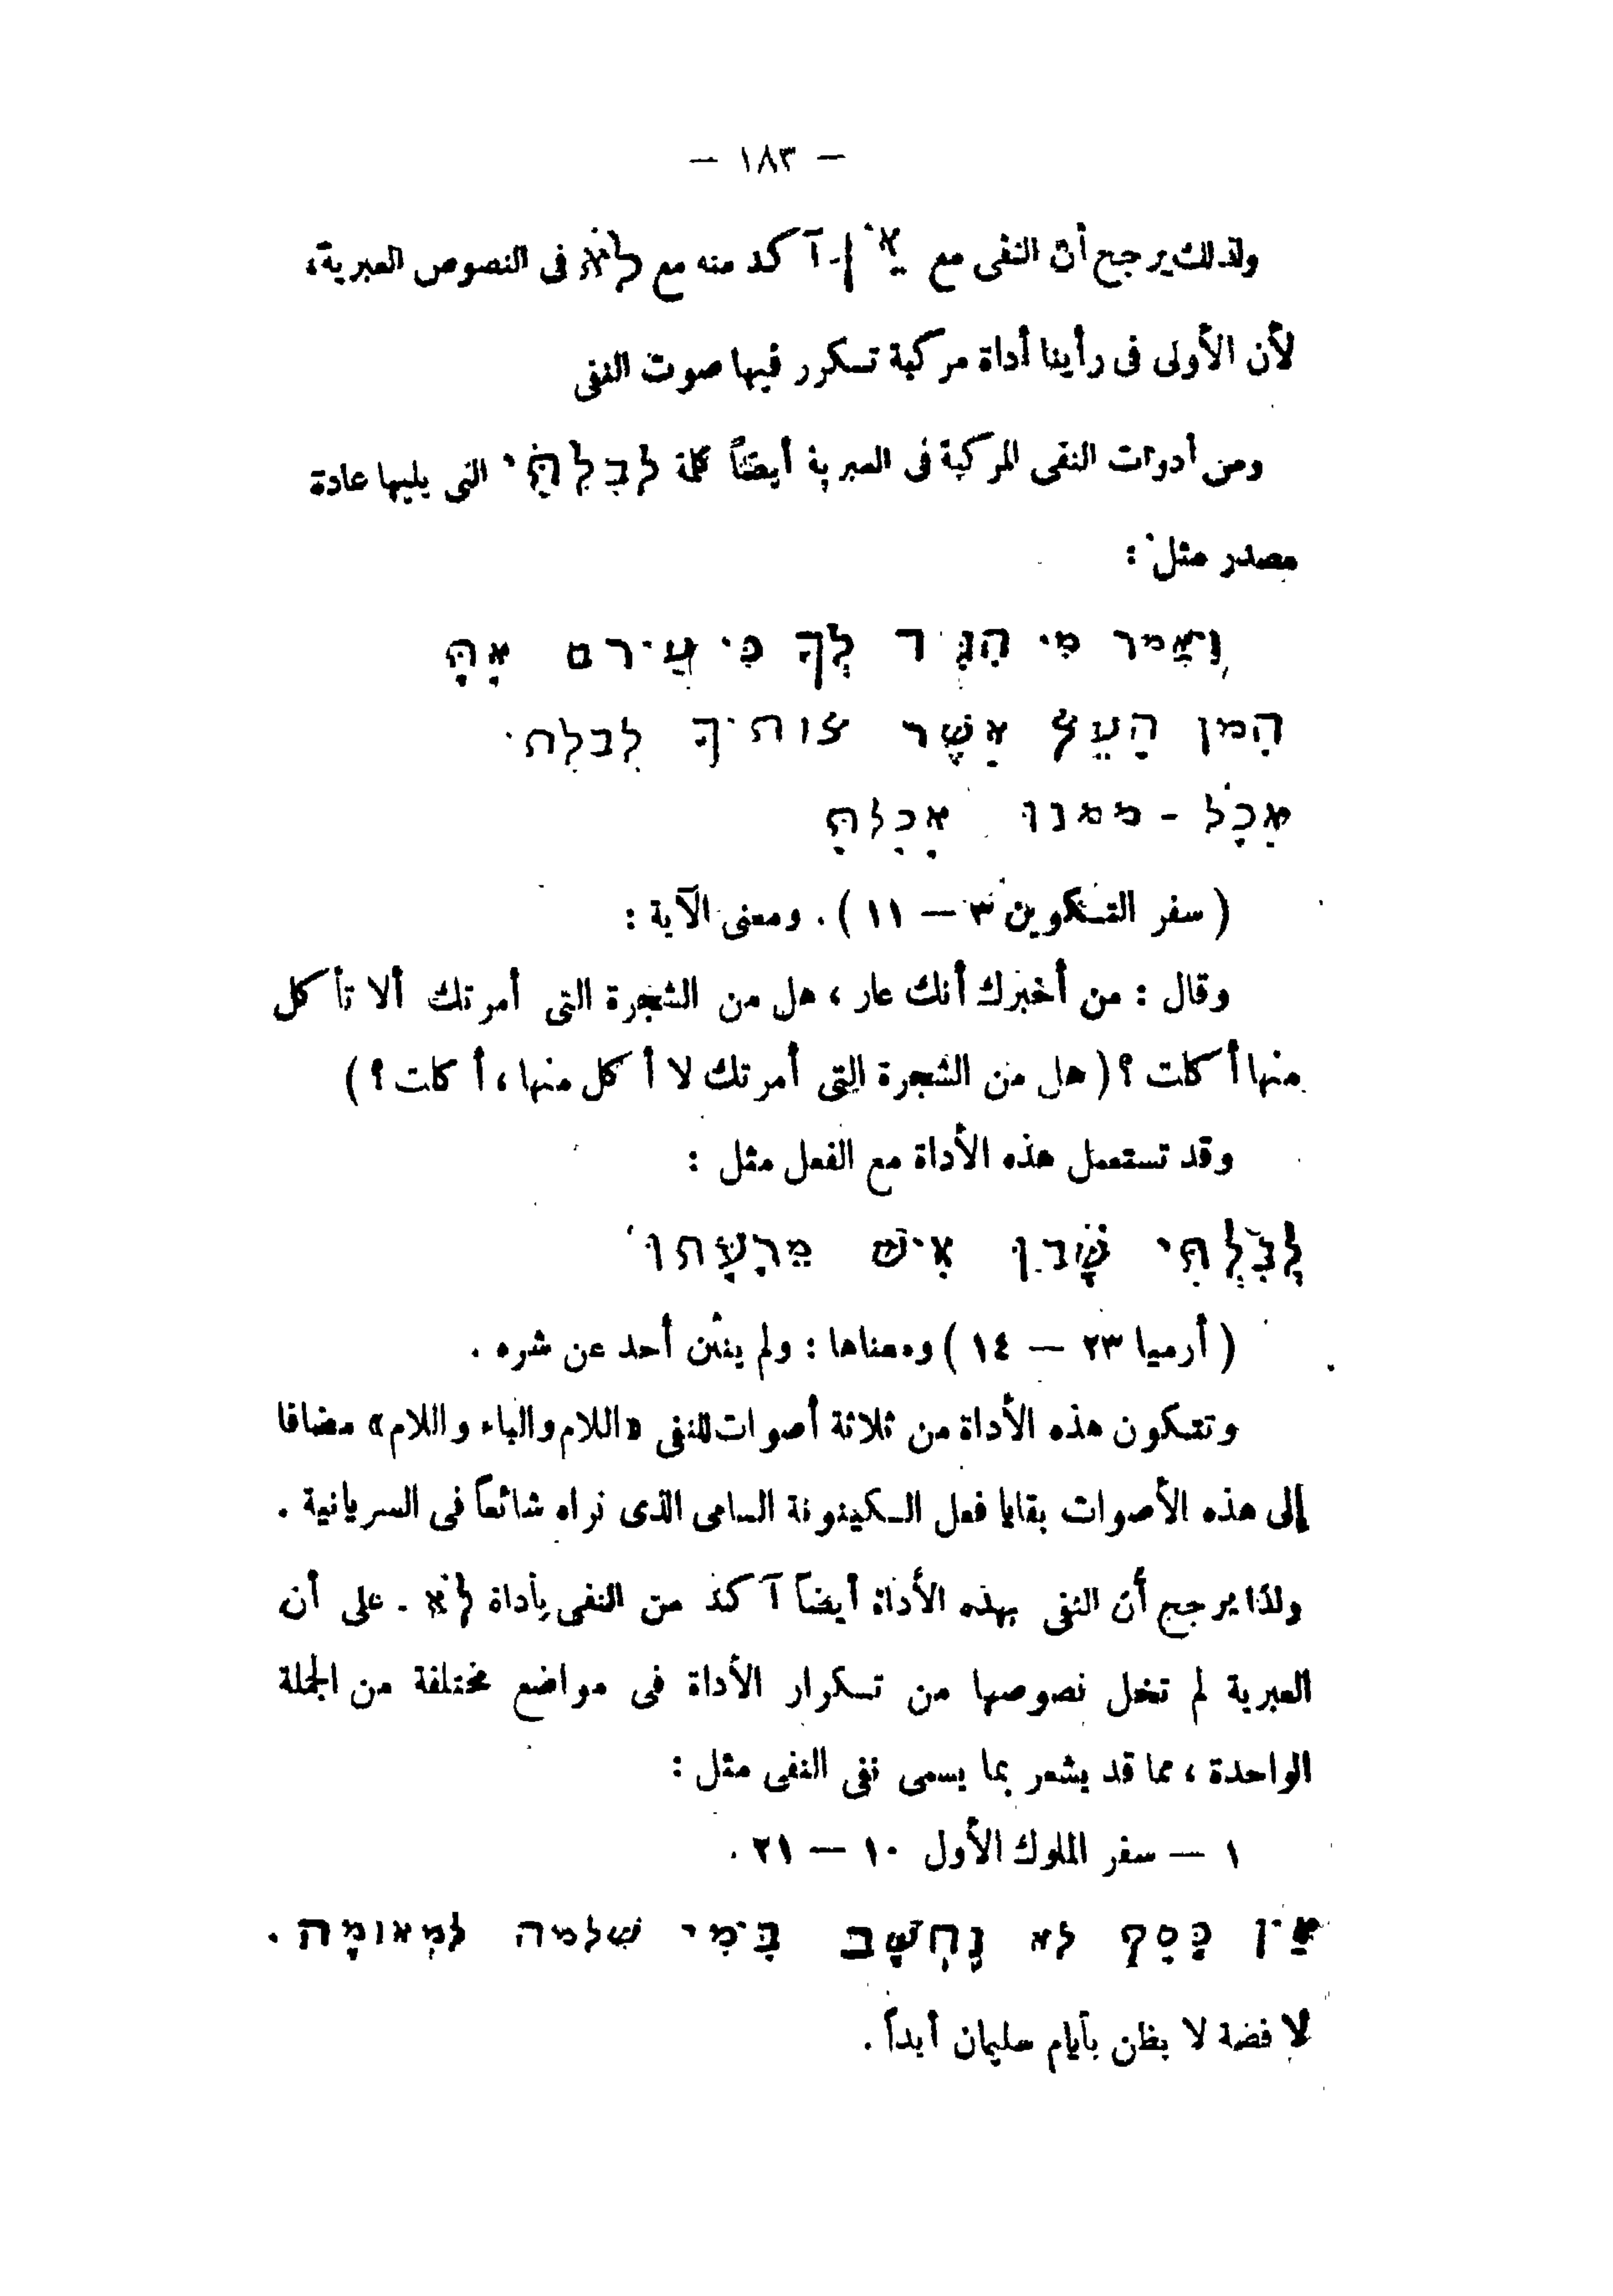 — ١٨٣ —
ولذلك يرجح أن النفى مع אֵין آكد منه مع לֹא فى النصوص العبرية،
لأن الأولى فى رأينا أداة مركبة تتكرر فيها صوت النفى
ومن أدوات النفى المركبة فى العبرية أيضاً كلمة לִבִלְתִּי التى يليها عادة
مصدر مثل :
וַיֹּאמר מִי הִגִּיד לְךָ כִּי עֲירם אָתָּה
הֲמן הָעֵץ אֲשֶׁר צותיךָ לבלתי
אֲכָל - ממנו אָכָלתָּ
( سفر التكوين ٣ — ١١ ) . ومعنى الآية :
وقال : من أخبرك أنك عار ، هل من الشجرة التى أمرتك ألا تأكل
منها أكلت ؟ ( هل من الشجرة التى أمرتك لا أكل منها ، أكلت ؟ )
وقد تستعمل هذه الأداة مع الفعل مثل :
לְבִּלְתִּי שָׁבוּ אִישׁ מֵרָעָתוֹ
( أرميا ٢٣ — ١٤ ) ومعناها : ولم ينثن أحد عن شره .
وتتكون هذه الأداة من ثلاثة أصوات للنفى «اللام والباء واللام» مضافا
إلى هذه الأصوات بقايا فعل الكينونة السامى الذى نراه شائعاً فى السريانية .
ولذا يرجح أن النفى بهذه الأداة أيضاً آكد من النفى بأداة לֹא . على أن
العبرية لم تخل نصوصها من تكرار الأداة فى مواضع مختلفة من الجملة
الواحدة ، مما قد يشعر بما يسمى نفى النفى مثل :
١ — سفر الملوك الأول ١٠ — ٢١ .
אַין כָּסָף לא נָחְשָׁב בִּימִי שׁלמה לִמְאוּמָה .
لا فضة لا يظن بأيام سليمان أبداً .